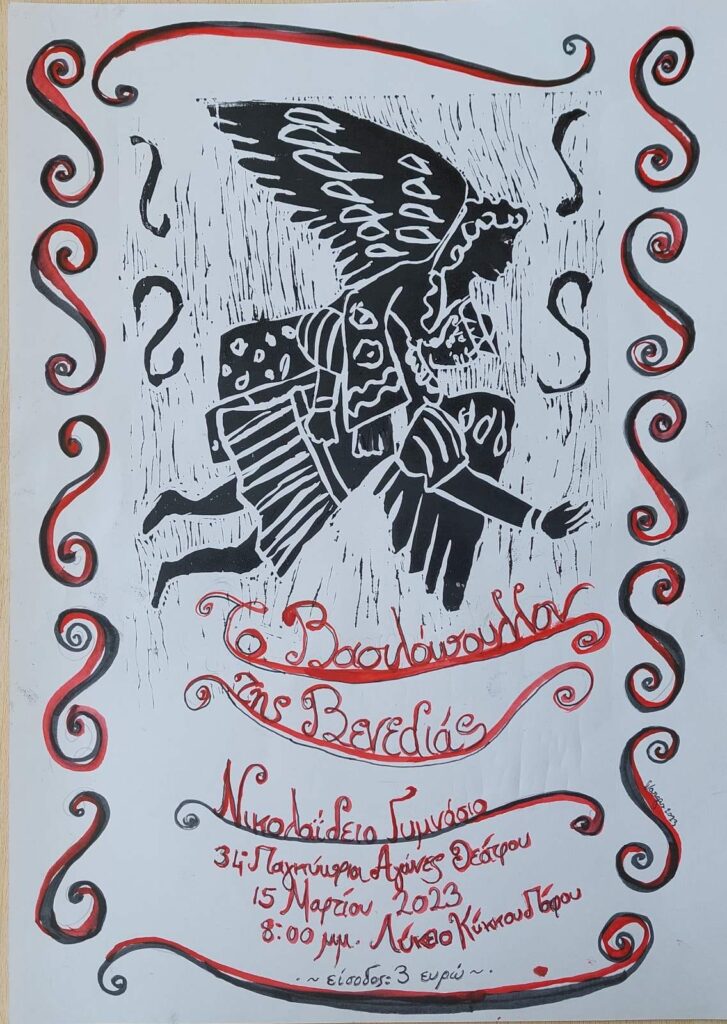 Το Βασιλόπουλλον
της Βενεδιάς
Νικολαΐδειο Γυμνάσιο
34οι Παγκύπριοι Αγώνες Θεάτρου
15 Μαρτίου 2023
8:00 μμ. Λύκειο Κύκκου Πάφου
.~ είσοδος: 3 ευρώ ~.